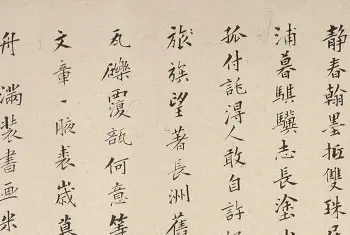 靜春翰墨抵雙珠
浦暮騏驥志長塗
孤付託得人敢自許
望著長洲舊
瓦礫覆瓿何意等
文章一腋裘歲莫
舟滿裝書画米